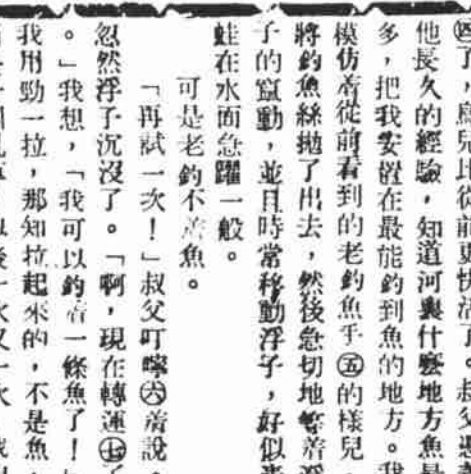 ㊃了，鳥兒比從前更快活了。叔父憑
他長久的經驗，知道河裏什麼地方魚最
多，把我安置在最能釣到魚的地方。我
模仿着從前看到的老釣魚手㊄的樣兒，
將釣魚絲拋了出去，然後急切地等着
子的竄動，並且時常移動浮子，好似
蛙在水面急躍一般。
可是老釣不着魚。
「再試一次！」叔父叮嚀㊅着說。
忽然浮子沉沒了。「啊，現在轉運㊆了
。」我想，「我可以釣着一條魚了！」
我用勁一拉，那知拉起來的，不是魚，